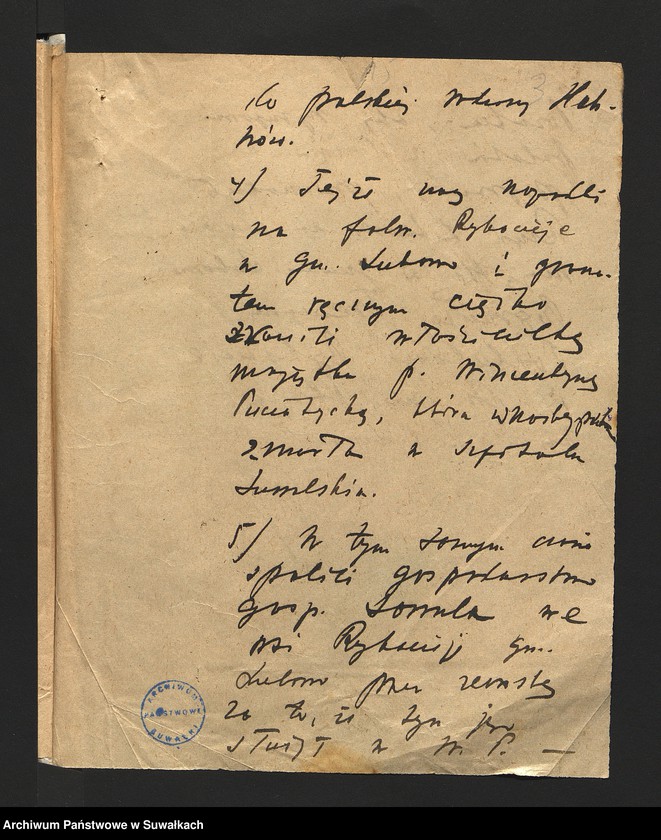 do polskiej rodziny Hak-
nów.
4) Tejże nocy napadli
na folw. Rybacieje
w gm. Lubowo i grana-
tem ręcznym ciężko
zranili właścicielkę
majątku p. Wincentynę
Puciatycką, która w następstwie
zmarła w szpitalu
Suwalskim.
5) W tym samym czasie
spalili gospodarstwo
gosp. we
wsi Rybacieje gm.
Lubowo przez zemstę
za to, iż syn jego
służył w W. P. —
ARCHIWUM
PAŃSTWOWE
SUWAŁKI
Archiwum Państwowe w Suwałkach